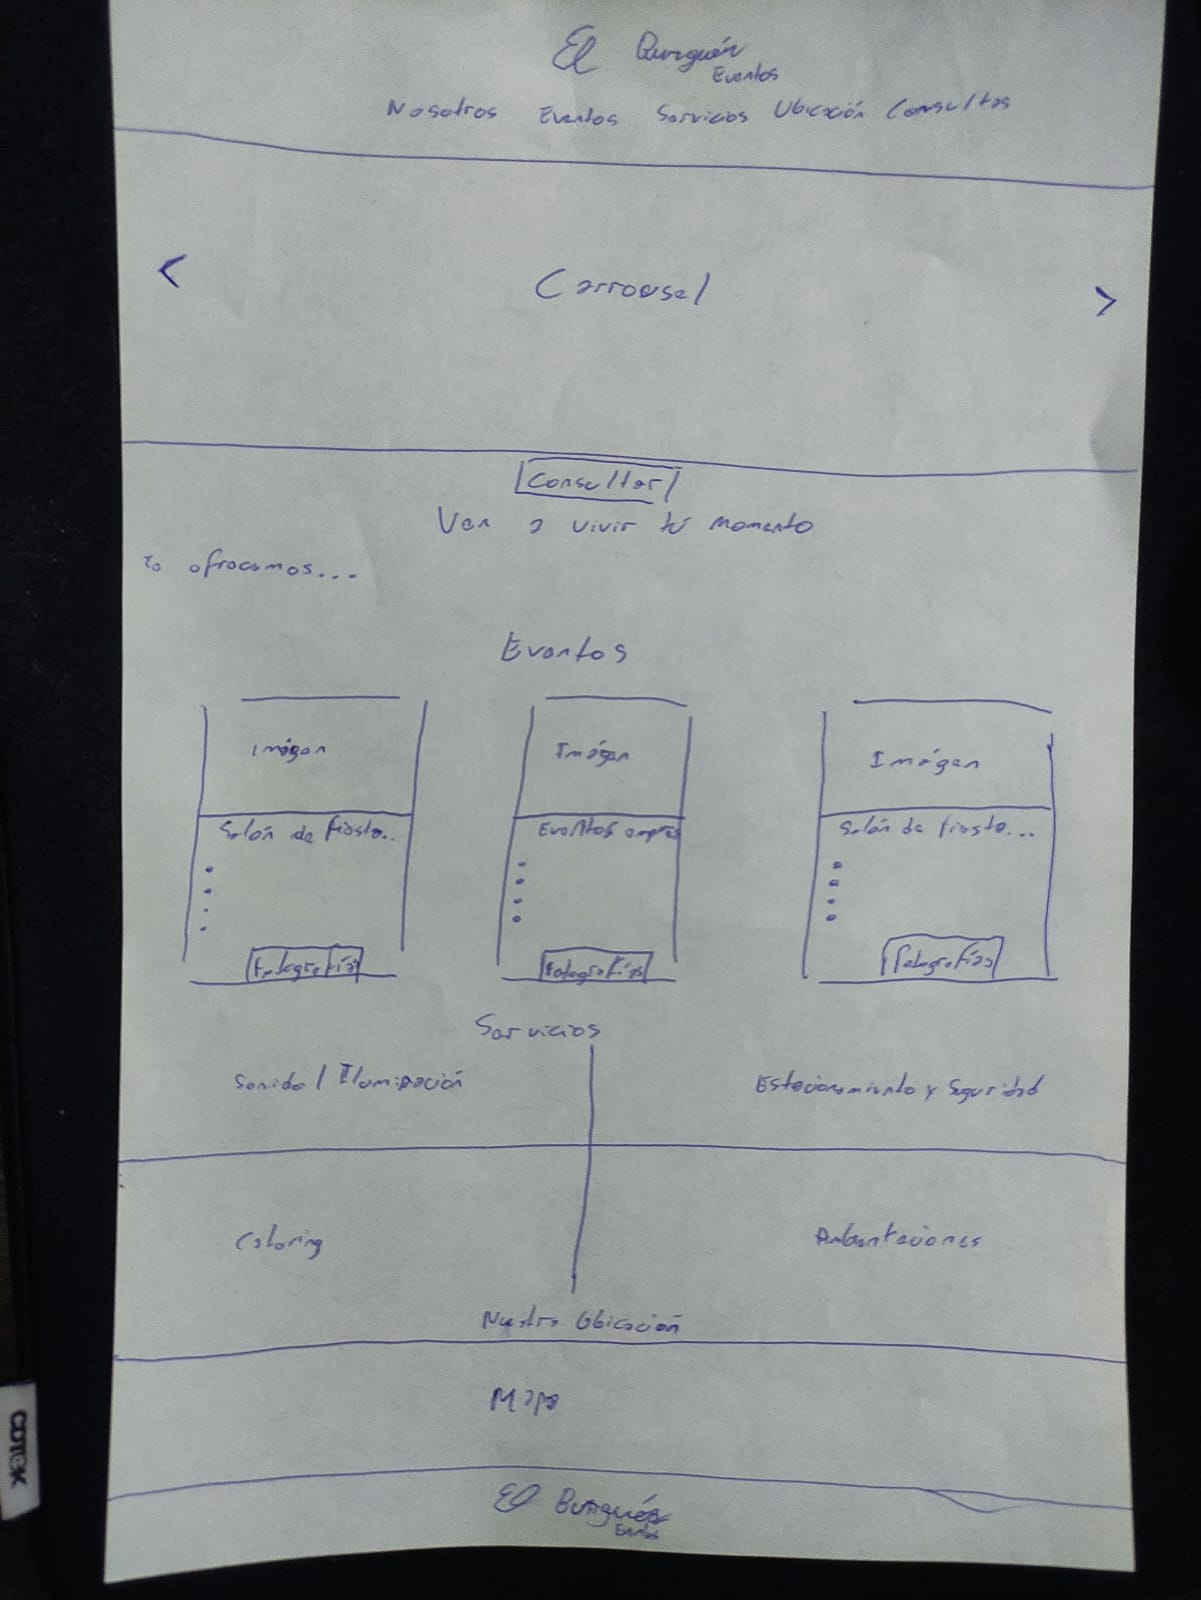 El Burgués
Eventos
Nosotros Eventos Servicios Ubicación Consultas
< Carrousel >
Consultar
Ven a vivir tú momento
te ofrecemos...
Eventos
Imágen Imágen Imágen
Salón de fiesta.. Eventos empres Salón de fiesta...
Fotografías Fotografías Fotografías
Servicios
Sonido / Iluminación Estacionamiento y Seguridad
Catering Ambientaciones
Nuestra Ubicación
Mapa
El Burgués
Eventos
COTEK